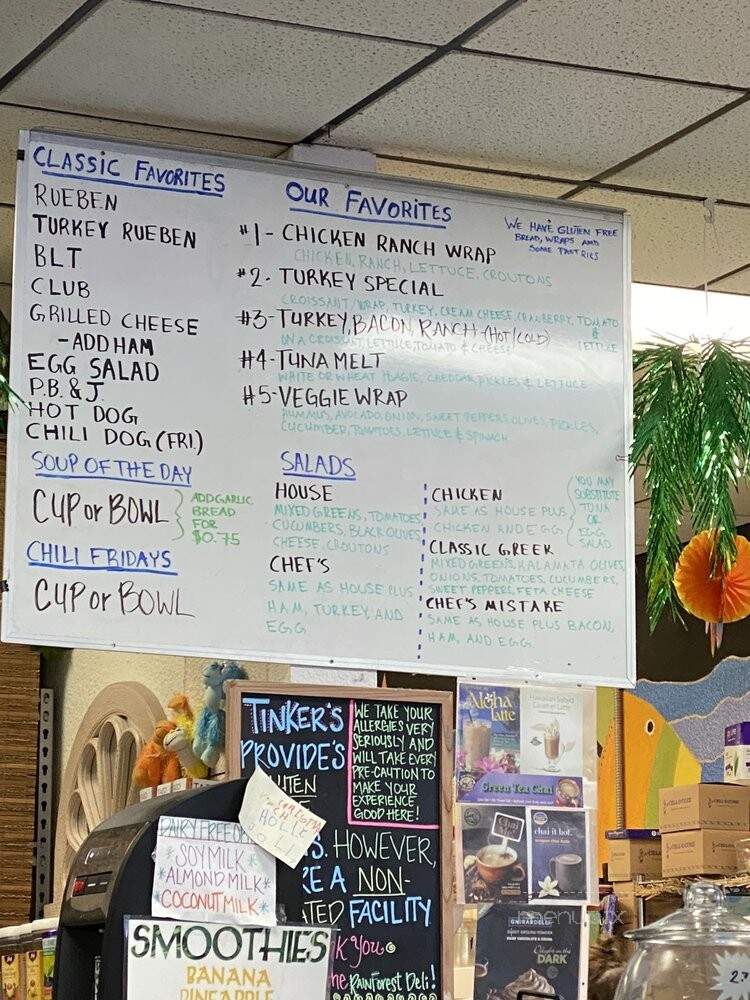 CLASSIC FAVORITES
RUEBEN
TURKEY RUEBEN
BLT
CLUB
GRILLED CHEESE
-ADD HAM
EGG SALAD
P.B. & J.
HOT DOG
CHILI DOG (FRI.)
SOUP OF THE DAY
CUP or BOWL
ADD GARLIC
BREAD
FOR
$0.75
CHILI FRIDAYS
CUP or BOWL
OUR FAVORITES
WE HAVE GLUTEN FREE
BREAD, WRAPS AND
SOME PASTRIES
#1- CHICKEN RANCH WRAP
CHICKEN, RANCH, LETTUCE, CROUTONS
#2- TURKEY SPECIAL
CROISSANT/WRAP, TURKEY, CREAM CHEESE, CRANBERRY, TOMATO
&
LETTUCE
#3-TURKEY, BACON, RANCH (HOT/COLD)
ON A CROISSANT, LETTUCE, TOMATO & CHEESE
#4-TUNA MELT
WHITE OR WHEAT, CHEDDAR, PICKLES & LETTUCE
#5-VEGGIE WRAP
HUMMUS, AVOCADO, ONION, SWEET PEPPERS, OLIVES, PICKLES,
CUCUMBER, TOMATOES, LETTUCE & SPINACH
SALADS
HOUSE
MIXED GREENS, TOMATOES
CUCUMBERS, BLACK OLIVES
CHEESE, CROUTONS
CHEF'S
SAME AS HOUSE PLUS
HAM, TURKEY, AND
EGG
CHICKEN
SAME AS HOUSE PLUS
CHICKEN AND EGG
YOU MAY
SUBSTITUTE
TUNA
OR
EGG
SALAD
CLASSIC GREEK
MIXED GREENS, KALAMATA OLIVES,
ONIONS, TOMATOES, CUCUMBERS,
SWEET PEPPERS, FETA CHEESE
CHEF'S MISTAKE
SAME AS HOUSE PLUS BACON,
HAM, AND EGG
TINKER'S
PROVIDE'S
WE TAKE YOUR
ALLERGIES VERY
SERIOUSLY AND
WILL TAKE EVERY
PRE-CAUTION TO
MAKE YOUR
EXPERIENCE
GOOD HERE!
HOWEVER,
A NON-
FACILITY
Rainforest Deli!
DAIRY FREE
*SOY MILK*
*ALMOND MILK*
*COCONUT MILK*
SMOOTHIE'S
BANANA
PINEAPPLE
Aloha
latte
Hawaiian Salted
Caramel Latte
Green Tea Chai
chai it hot.
GHIRARDELLI
DARK